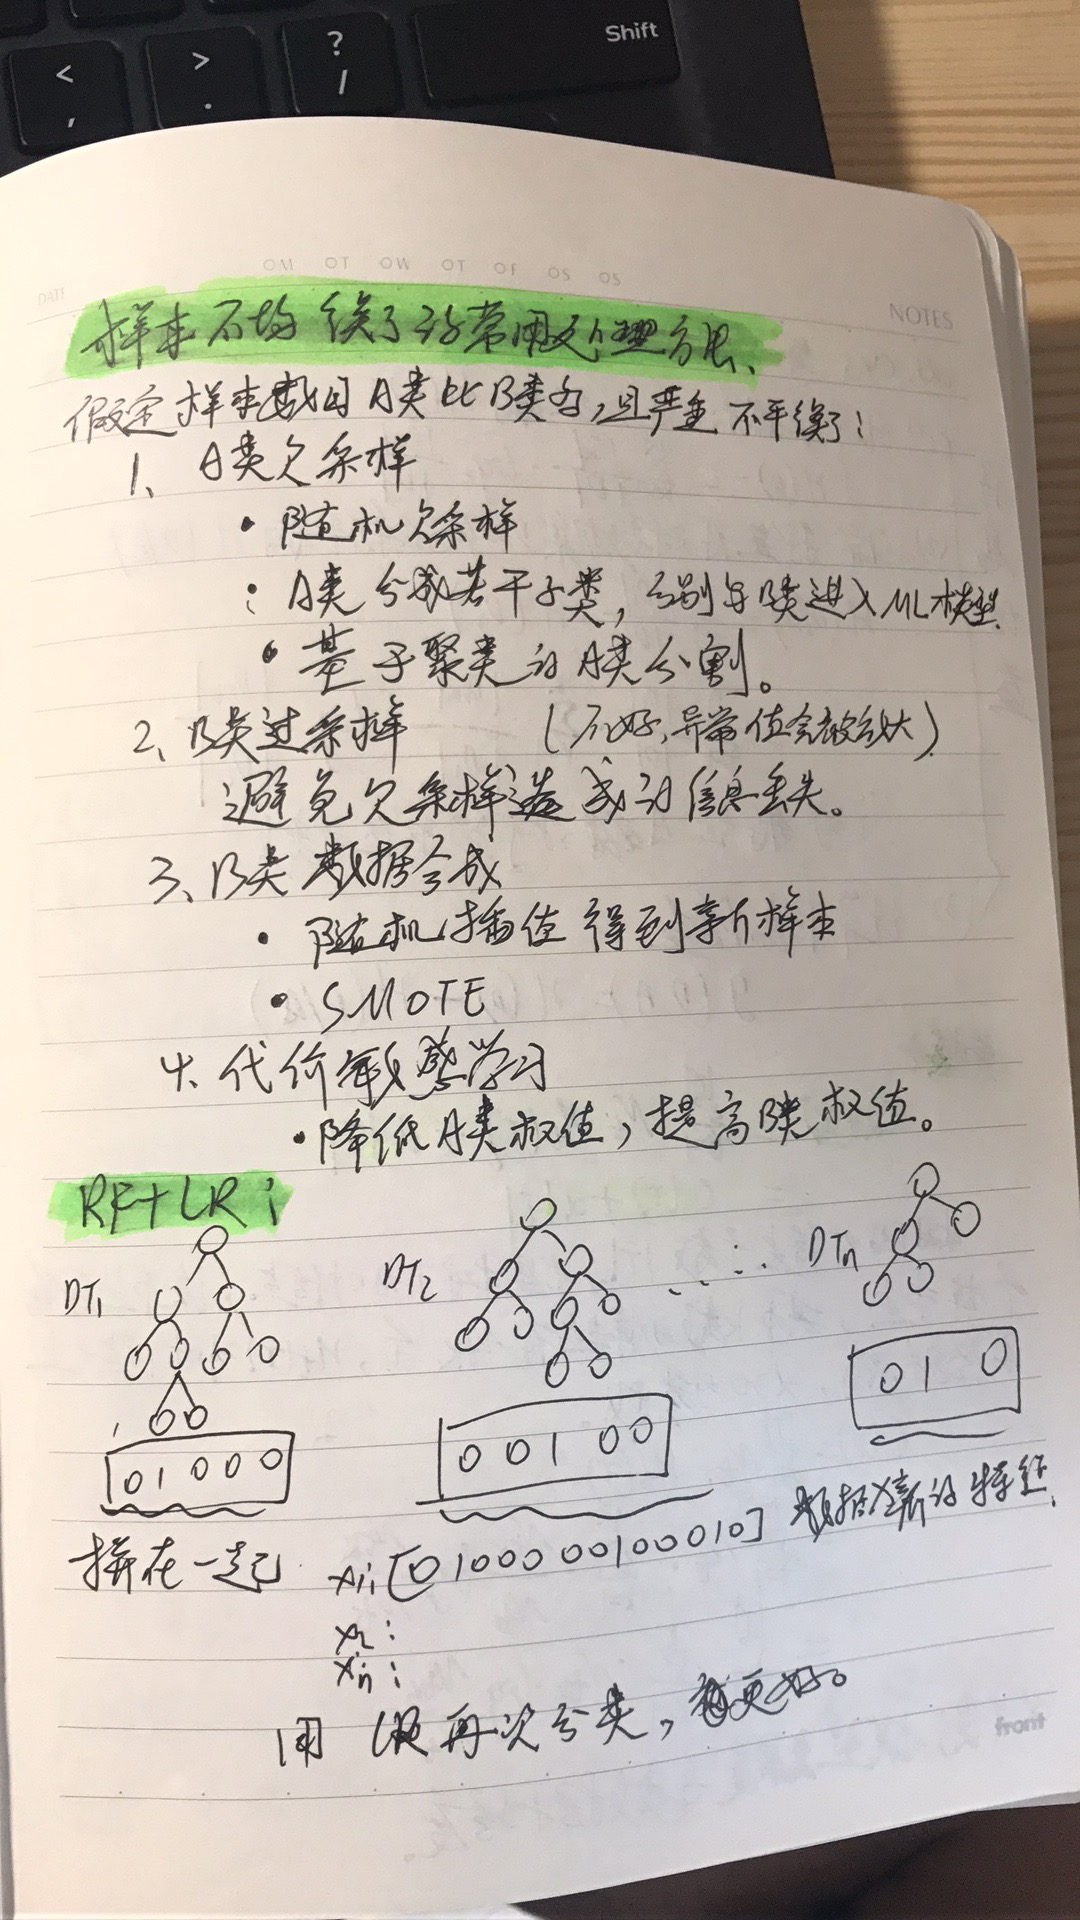 Shift
<
>
?
,
.
/
DATE
NOTES
样本不均衡了的常用处理方法、
假定样本数目A类比B类多,且严重不平衡了:
1、A类欠采样
• 随机欠采样
• A类分成若干子类,分别与B类进入ML模型.
• 基于聚类的A类分割。
2、B类过采样 (不好,异常值会被放大)
避免欠采样造成的信息丢失。
3、B类数据合成
• 随机插值得到新样本
• SMOTE
4、代价敏感学习
• 降低A类权值,提高B类权值。
RF+LR:
DT1 DT2 ...... DTn
0 1 0 0 0 0 0 1 0 0 0 1 0
拼在一起 x1:[0100000100010] 数据新的特征.
x2:
xn:
用LR再次分类,更好。
front